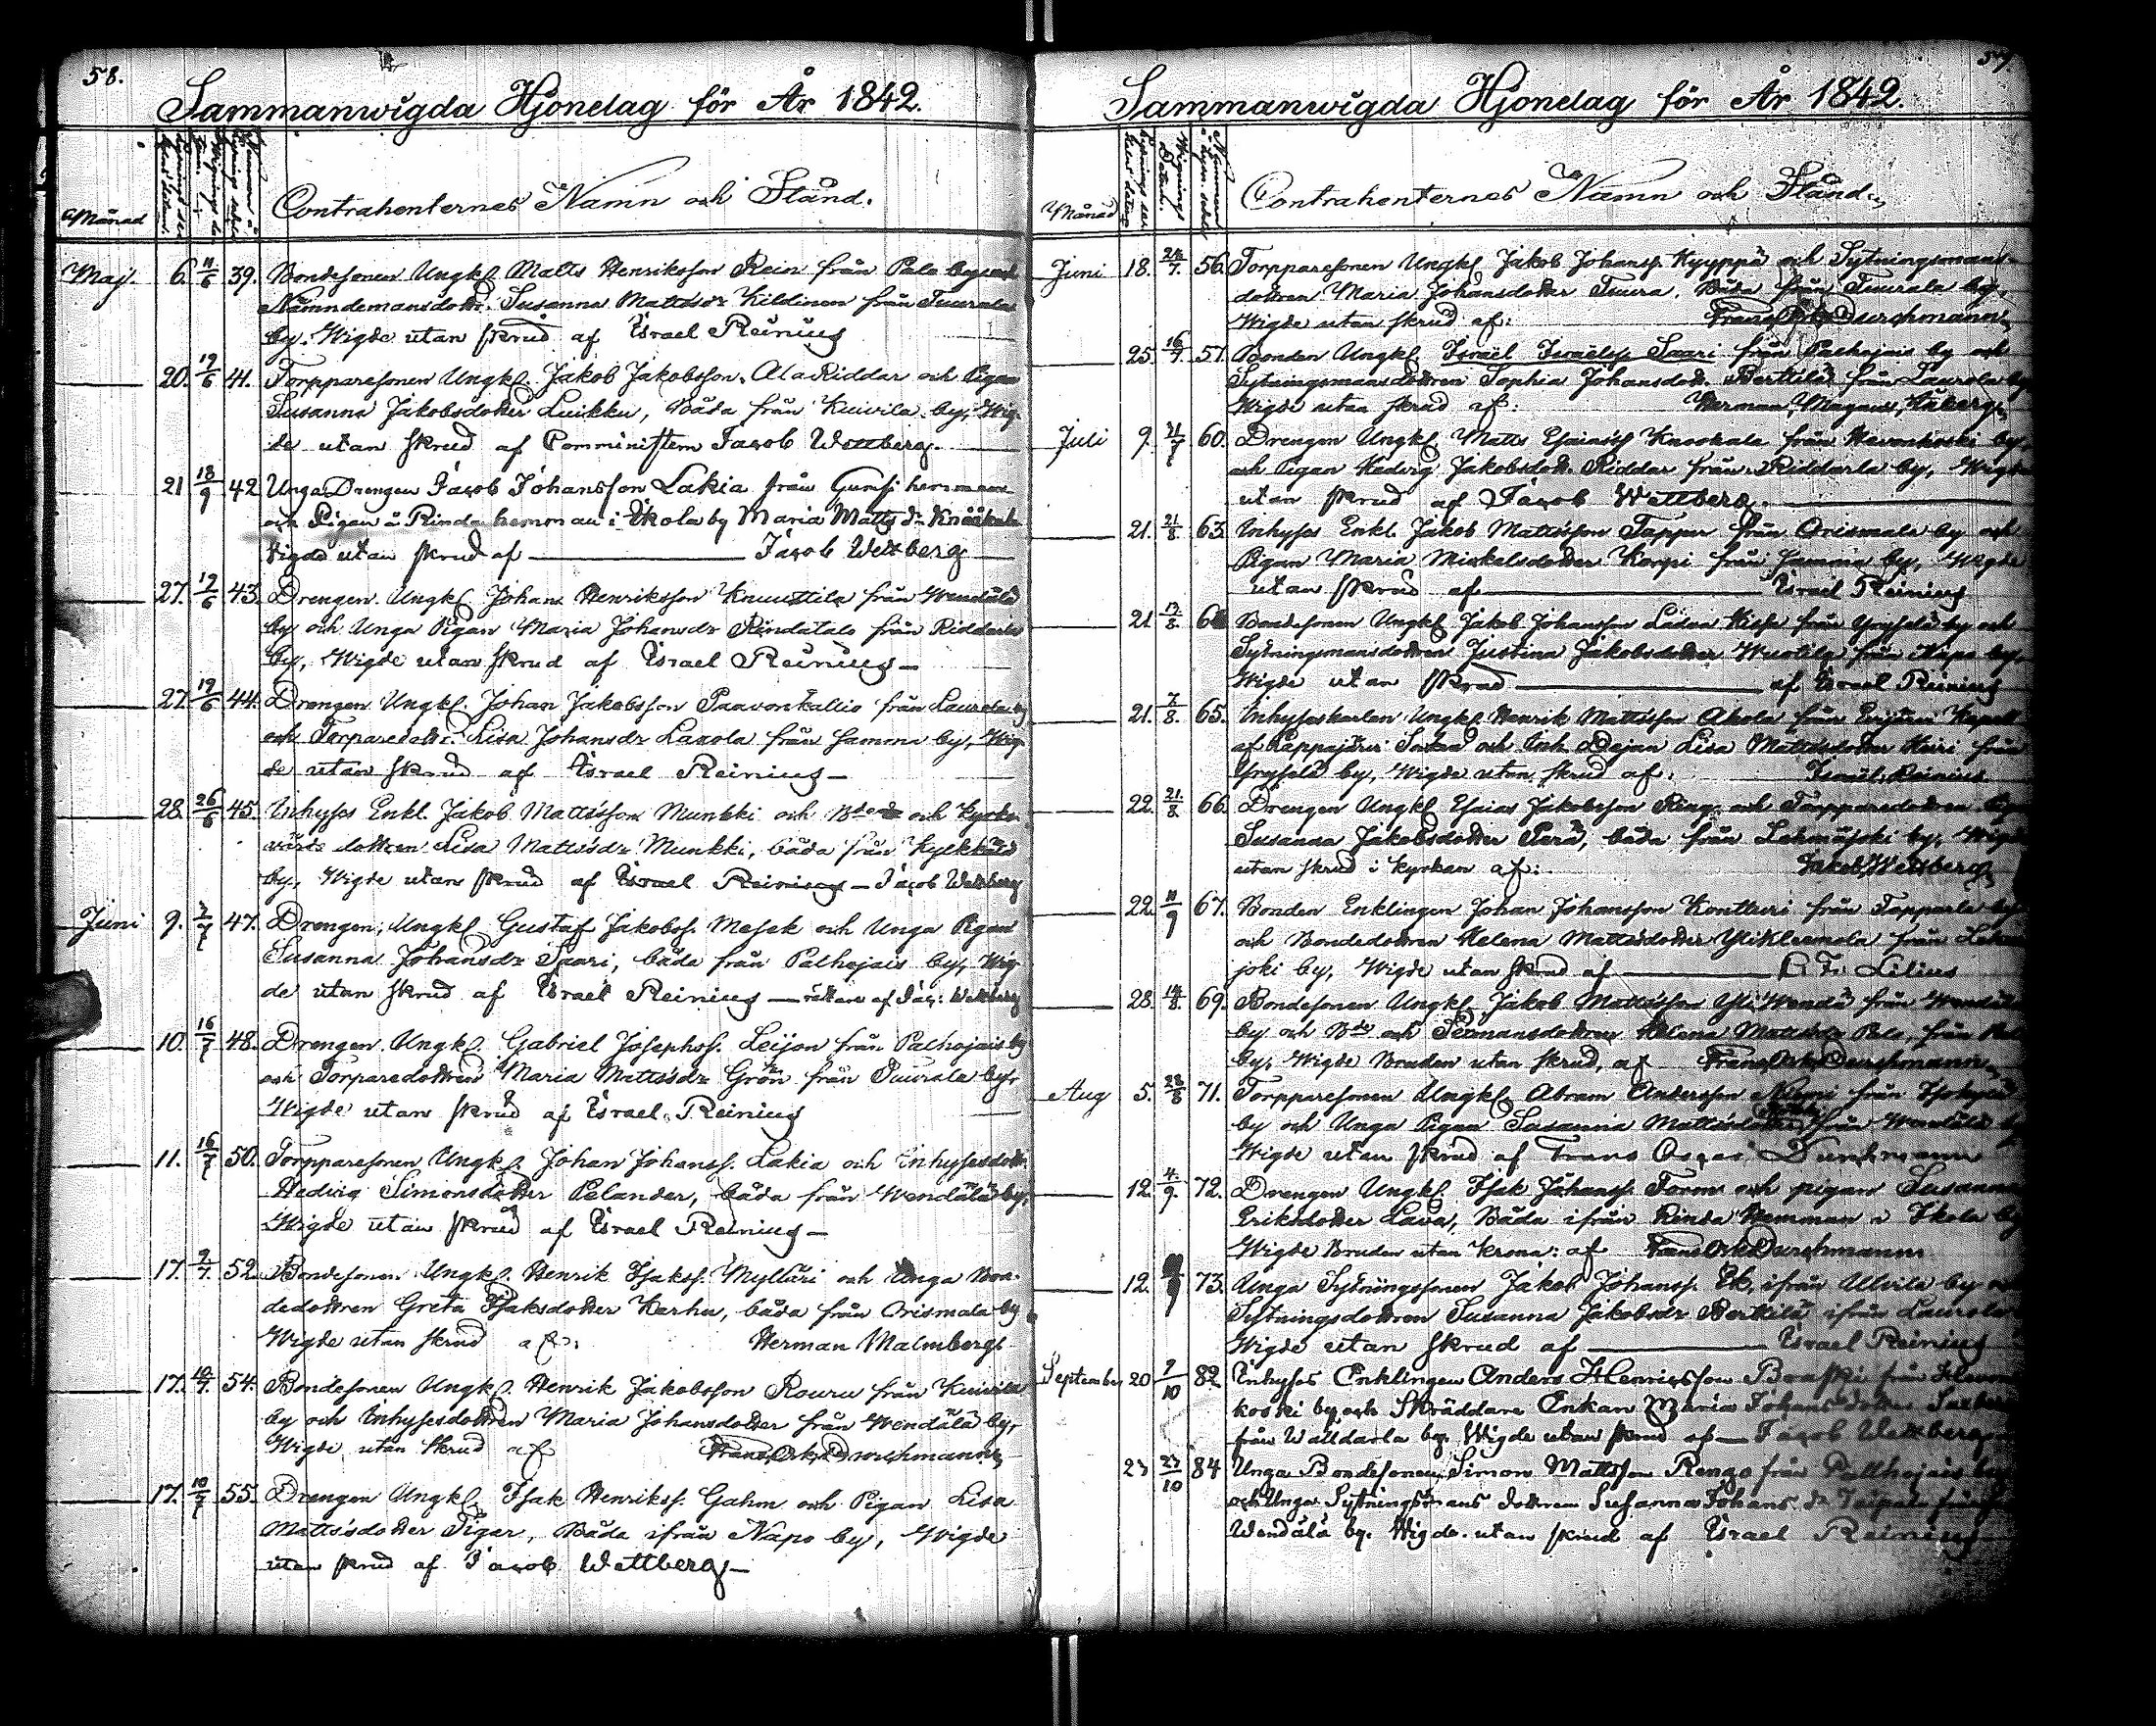 58.
Sammanwigda Hjonelag för År 1842.
Månad
Contrahenternes Namn och Stånd.
Maj. 6. 11/6 39. Bondesonen Ungkl. Matts Henriksson Rein från Palo by och
Nämndemansdottr. Susanna Mattsdr Kildinen från Tuurala
by. Wigde utan skrud af Israel Reinius
20. 19/6 41. Torpparesonen Ungkl. Jakob Jakobsson AlaRiddar och Pigan
Susanna Jakobsdotter Luikku, Båda från Kuivila by, Wig-
de utan skrud af Pomministern Jacob Wettberg.
21 18/9 42 Unga Drengen Jacob Johansson Lakia från Gumsi hemman
och Pigan å Rinda hemman i Ikola by Maria Matts dr
Wigde utan skrud af Jacob Wettberg
27. 19/6 43. Drengen Ungkl. Johan Henriksson Knuuttila från Wendälä
by och Unga Pigan Maria Johansdr Rindatalo från Riddarla
by, Wigde utan skrud af Israel Reinius
27. 19/6 44. Drengen Ungkl. Johan Jakobsson Paavontallio från Laurola by
och Torparedottr. Lisa Johansdr Laxola från samma by, Wig-
de utan skrud af Israel Reinius
28. 26/6 45. Inhyses Enkl. Jakob Mattsson Munkki och och Kyrko-
värds dottren Lisa Mattsdr Munkki, båda från Kylkkälä
by, Wigde utan skrud af Israel Reinius Jacob Wettberg
Juni 9. 3/7 47. Drengen, Ungkl. Gustaf Jakobss. Mesek och Unga Pigan
Susanna Johansdr Saari, båda från Palhojais by, Wig-
de utan skrud af Israel Reinius rättare af Jac: Wettberg
10. 16/7 48. Drengen Ungkl. Gabriel Josephss. Leijon från Palhojais by
och Torparedottren Maria Mattsdr Grön från Tuurala by,
Wigde utan skrud af Israel Reinius
11. 16/7 50. Torpparesonen Ungkl. Johan Johanss. Lakia och Inhysesdottr.
Hedvig Simonsdotter Pelander, båda från Wendälä by,
Wigde utan skrud af Israel Reinius
17. 2/7. 52. Bondesonen Ungkl. Henrik Isakss. Mylläri och Unga Bon-
dedottren Greta Isaksdotter Karhu, båda från Orismala by
Wigde utan skrud af: Herman Malmberg
17. 10/7. 54. Bondesonen Ungkl. Henrik Jakobsson Rouru från Kuivila
by och Inhysesdottren Maria Johansdotter från Wendälä by,
Wigde utan skrud af Frans Osk. Durchmann
17. 10/7 55. Drengen Ungkl. Isak Henrikss. Gahm och Pigan Lisa
Mattsdotter Tigar, Båda ifrån Napo by, Wigde
utan skrud af Jacob Wettberg
Sammanwigda Hjonelag för År 1842.
Månad
Contrahenternes Namn och Stånd.
Juni 18. 24/7. 56. Torpparesonen Ungkl. Jakob Johanss. Kyyppä och Sytningsmans-
dottren Maria Johansdotter Tuura, Båda från Tuurala by,
Wigde utan skrud af: Frans Osk. Durchmann
25. 16/7. 57. Bonden Ungkl. Israël Israëlss. Saari från Palhojais by och
Sytningsmansdottren Sophia Johansdott. Berttilä från Laurola by
Wigde utan skrud af: Herman Magnus
Juli 9. 31/7 60. Drengen Ungkl. Matts Esaiass. från by
och Pigan Hedvig Jakobsdott. Riddar från Riddarla by, Wigde
utan skrud af Jacob Wettberg.
21. 21/8 63. Inhyses Enkl. Jakob Mattsson Tappur från Orismala by och
Pigan Maria Mickelsdotter Korpi från samma by, Wigde
utan skrud af Israel Reinius
21. 12/8. Bondesonen Ungkl. Jakob Johansson från by och
Sytningsmansdottren Justina Jakobsdotter Wuotila från Napo by,
Wigde utan skrud af Israel Reinius
21. 7/8. 65. Inhyseskarlen Ungkl. Henrik Mattsson Akola från
af Lappajärvi Socken och Inh. Lisa Mattsdotter från
by, Wigde utan skrud af: Israël Reinius
22. 21/8 66. Drengen Ungkl. Esaias Jakobsson Ring och Torpparedottren
Susanna Jakobsdotter Perä, båda från Lehmäjoki by, Wigde
utan skrud i kyrkan af: Jakob Wettberg
22. 11/9 67. Bonden Enklingen Johan Johansson Kontturi från Topparla by
och Bondedottren Helena Mattsdotter Ylikleemola från
joki by, Wigde utan skrud af Lilius
28. 14/8. 69. Bondesonen Ungkl. Jakob Mattsson Yli Wendä från Wendälä
by och Helena Mattsdr Palo, från
by, Wigde Bruden utan skrud, af Frans Osk. Durchmann
Aug 5. 28/8 71. Torpparesonen Ungkl. Abram Andersson Niemi från Isokylä
by och Unga Pigan Susanna Mattsdotter från Wendälä
Wigde utan skrud af Frans Oscar Durchmann
12. 4/9. 72. Drengen Ungkl. Isak Johanss. Form och pigan Susanna
Eriksdotter Lava, Båda ifrån Rinda Hemman i Ikola by
Wigde Bruden utan krona: af Frans Osk. Durchmann
12. 73. Unga Sytningssonen Jakob Johanss. Ek, ifrån Ullvila by
Sytningsdottren Susanna Jakobsdr Berttilä ifrån Laurola
Wigde utan skrud af Israel Reinius
September 20 2/10 82 Inhyses Enklingen Anders Henricsson från
koski by och Skräddare Enkan Maria Johans dotter
från Walldarla by. Wigde utan skrud af Jacob Wettberg
23 23/10 84 Unga Bondesonen Simon Mattsson Rengo från Pallhojais by
och Unga Sytningsmans dottren Susanna Johans dr Taipale från
Wendälä by. Wigde utan skrud af Israel Reinius